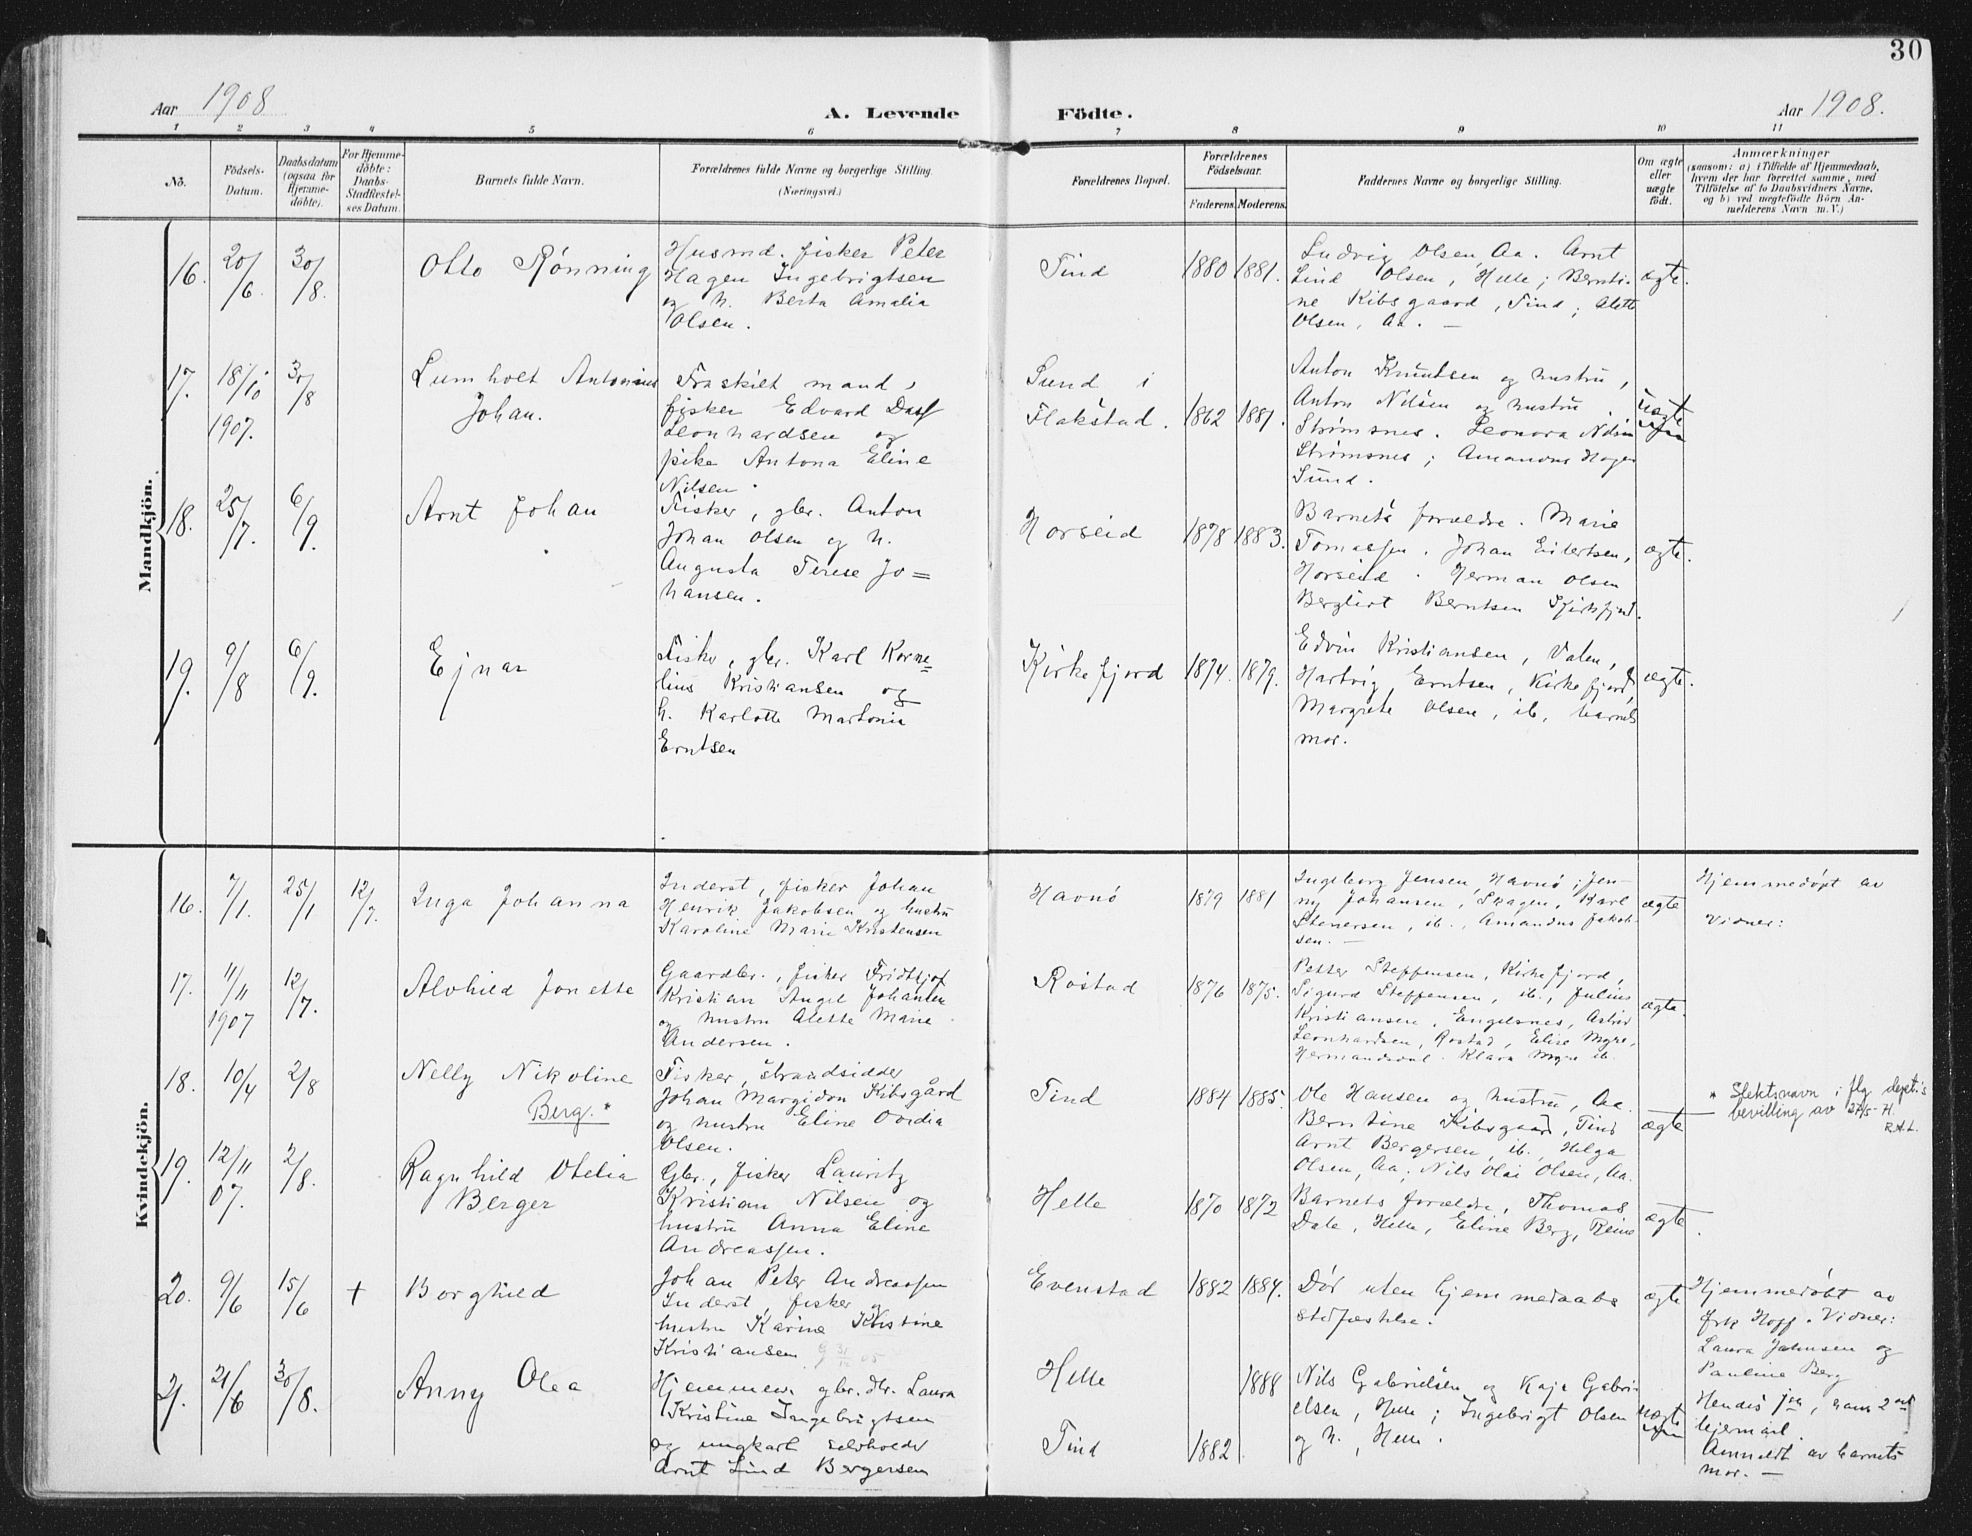 30
Aar 1908
A. Levende
Födte.
Aar 1908.
1 2 3 4 5 6 7 8 9 10 11
No.
Födsels-
Datum.
Daabsdatum
(ogsaa for
Hjemme-
döbte).
For Hjemme-
döbte:
Daabs-
Stadfæstel-
ses Datum.
Barnets fulde Navn.
Forældrenes fulde Navne og borgerlige Stilling
(Næringsvei.)
Forældrenes Bopæl.
Forældrenes
Födselsaar.
Faderens. Moderens.
Faddernes Navne og borgerlige Stilling.
Om ægte
eller
uægte
födt.
Anmærkninger
(saasom: a) i Tilfælde af Hjemmedaab,
hvem der har forrettet samme, med
Tilföielse af to Daabsvidners Navne,
og b) ved uægtefödte Börn An-
melderens Navn m. V.)
Mandkjön.
16. 20/6. 30/8.
Otto Rönning
Husmd. fisker Peter
Hagen Ingebrigtsen
og h. Berta Amalia
Olsen.
Tind
1880 1881.
Ludvig Olsen, Aa. Arnt
Lind Olsen, Helle; Bernti-
ne Kibsgaard, Tind; Alette
Olsen, Aa. —
ægte.
17. 18/10 30/8
1907.
Lumholt Antonius
Johan.
Fraskilt mand,
fisker Edvard Dass
Leonhardsen og
pike Antona Eline
Nilsen.
Sund i
Flakstad.
1862 1881.
Anton Knutsen og hustru,
Anton Nilsen og hustru.
Strømsnes. Leonora Nilsen
Strømsnes; Amandus Hagen
Sund.
uægte
18. 25/7. 6/9.
Arnt Johan
Fisker, gbr. Anton
Johan Olsen og h.
Augusta Terese Jo=
hansen.
Horseid
1878 1883.
Barnets forældre. Marie
Tomassen. Johan Eilertsen,
Horseid. Herman Olsen
Bergliot Berntsen
ægte.
19. 9/8 6/9.
Ejnar
Fisker, gbr. Karl Korne=
lius Kristiansen og
h. Karlotte Martonia
Erntsen
Kirkefjord
1874. 1879.
Edvin Kristiansen, Valen,
Hartvig Erntsen, Kirkefjord,
Margrete Olsen, ib, barnets
mor.
ægte.
Kvindekjön.
16. 7/1. 25/1 12/7.
Inga Johanna
Inderst, fisker Johan
Henrik Jakobsen og hustru
Karoline Marie Kristensen
Havnö
1879 1881
Ingeborg Jensen, Havnö; Jen-
ny Johansen, Skagen, Karl
Stenersen, ib., Amandus Jakob-
sen. —
ægte
Hjemmedøpt av
Vidner:
17. 11/11 12/7.
1907
Alvhild Jonette
Gaardbr., fisker Fridtjof
Kristian Angel Johansen
og hustru Alette Marie
Andersen.
Rostad
1876 1875.
Petter Steffensen, Kirkefjord,
Sigurd Steffensen, ib., Julius
Kristiansen, Engelsnes, Astrid
Leonhardsen, Rostad, Elise Myre,
Hermandsdal. Klara Myre ib.
ægte.
18. 10/4 2/8
Nelly Nikoline
Berg. *
Fisker, strandsidder
Johan Margidon Kibsgård
og hustru Eline Ovidia
Olsen.
Tind
1884 1885.
Ole Hansen og hustru, Aa.
Berntine Kibsgaard, Tind
Arnt Bergersen, ib., Helga
Olsen, Aa; Nils Olai Olsen, Aa.
ægte
* Slektsnavn i flg dept's
bevilling av 27/5-
19. 12/11 2/8.
07.
Ragnhild Otelia
Berger
Gbr., fisker Lauritz
Kristian Nilsen og
hustru Anna Eline
Andreassen.
Helle
1870 1872
Barnets forældre, Thomas
Dale, Helle, Eline Berg, Reine
ægte.
20. 9/6 15/6 +
Borghild
Johan Peter Andreassen
Inderst, fisker og
hustru Karine Kristine
Kristiansen
Evenstad
1882 1884.
Död uten hjemmedaabs
stdfæstelse.
ægte
Hjemmedöbt av
frk Hoff. Vidner:
Laura Johnsen og
Pauline Berg
21. 21/6 30/8.
Anny Olea
Hjemmev. gbr. dtr. Laura
Kristine Ingebrigtsen
og ungkarl selvholder
Arnt Lind Bergersen
Helle
Tind
1888
1882
Nils Gabrielsen og Kaja Gabri-
elsen, Helle; Ingebrigt Olsen
og h., Helle.
uægte
Hendes 1ste, hans 2net
leiermål.
Anmeldt av barnets
mor. —